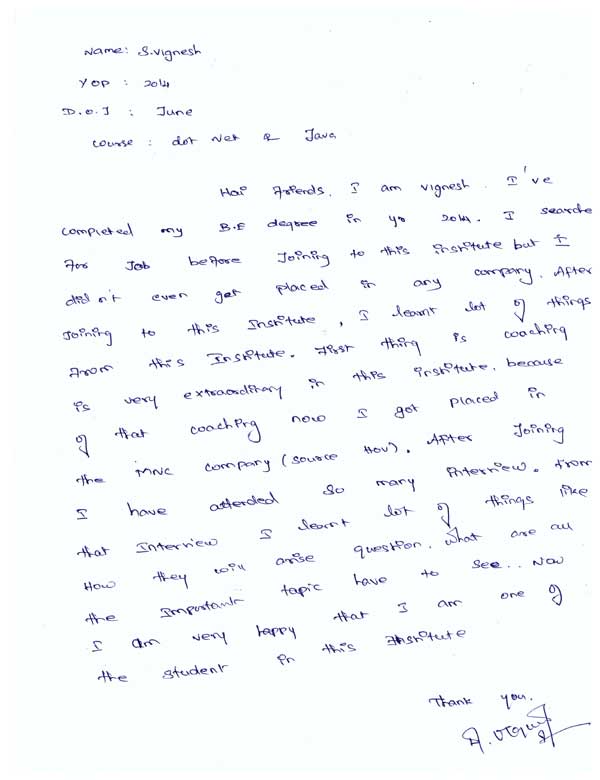 Name: S.Vignesh
YOP : 2014
D.O.J : June
Course : dot Net & Java
Hai Friends. I am vignesh. I've
completed my B.E degree in yr 2014. I searche
For Job before Joining to this institute but I
didn't even get placed in any company. After
Joining to this Institute, I learnt lot of things
From this Institute. First thing is coaching
is very extraorditary in this institute. because
of that coaching now I got placed in
the MNC company (Source Hov). After Joining
I have attended so many interview. From
that Interview I learnt lot of things like
How they will arise question. What are all
the Important tapic have to see.. Now
I am very happy that I am one of
the student in this Institute
Thank you.